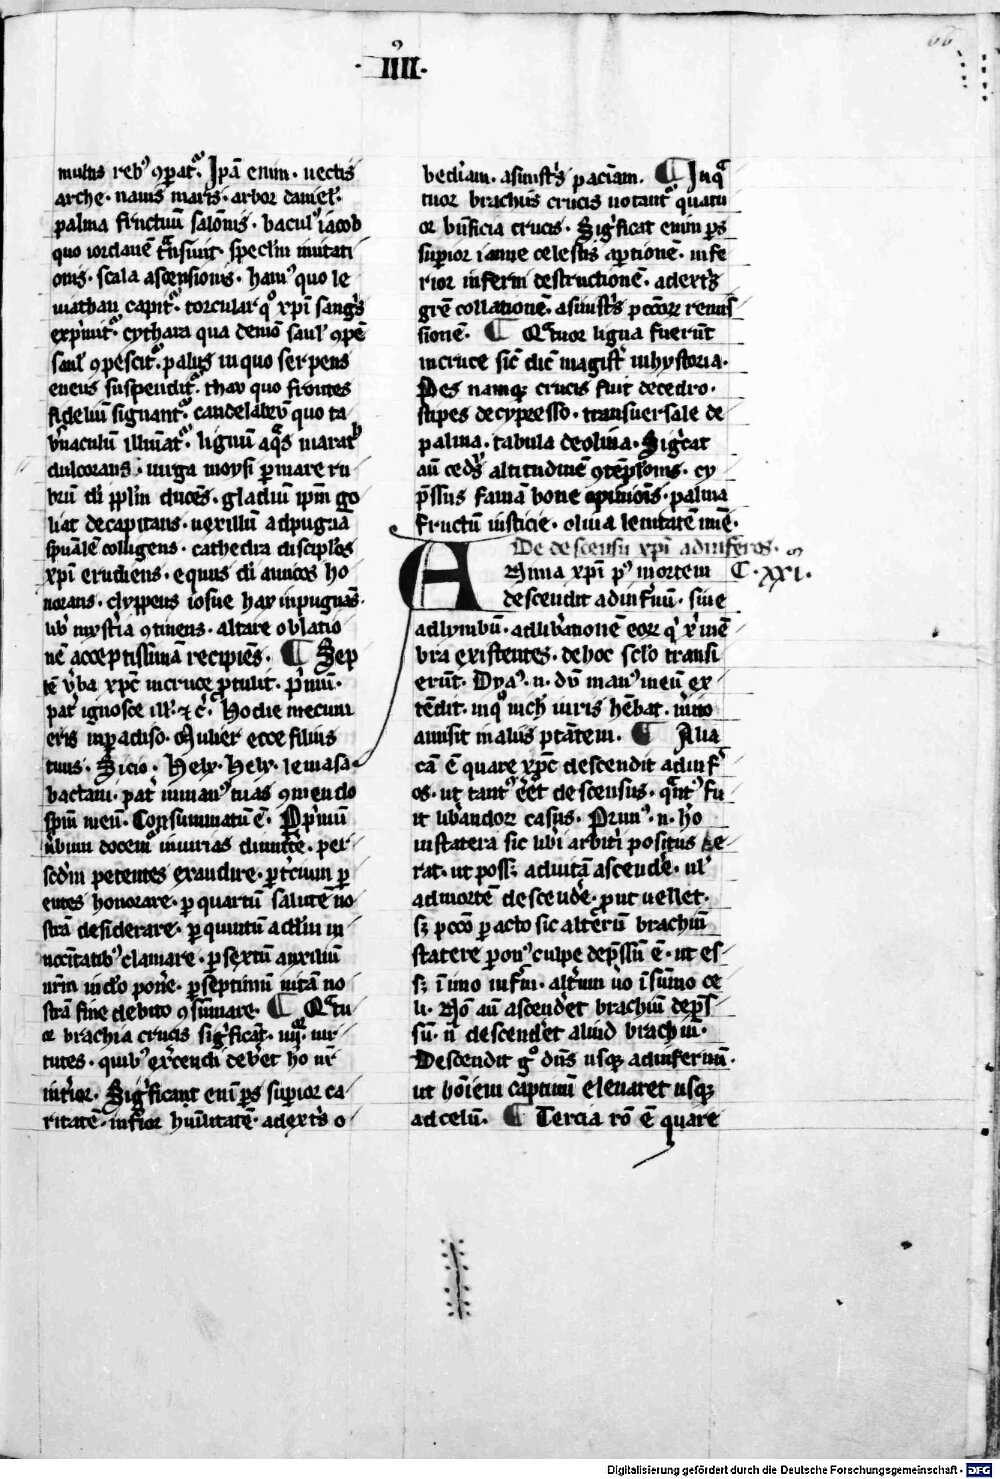 66
·IIII·
multis rebꝰ ꝯparatᷓ. Ip̄a enim · uectis
arche · nauis maris · arbor daniel̓ ·
palma fructuū salōnis · baculꝰ iacob
quo iordanē tͣnsiuit · specl̄m mutati
onis · scala ascensionis · hamꝰ quo le
uiathan capitᷓ · torcular qͦ xp̄i sangͥs
exp̓mitᷓ · cythara qua demō saul̓ ꝯpē
saul̓ ꝯpescitᷓ · palus in quo serpens
eneus suspenditᷓ · thau quo frontes
fideliū signantᷓ · candelabrū quo ta
b̓naculū illūatᷓ · lignū aqͣs marath
dulcorans · uirga moysi ꝑ mare ru
brū dī ppl̄m ducēs · gladiū ip̄m go
liat decapitans · uexilliū ad pugnā
sp̄ualē colligens · cathedra discipl̓os
xp̄i erudiens · equus dī amicos ho
norans · clyppeus iosue hay inpugnās ·
lib̓ myst̓ia ꝯtinens · altare oblatio
nē acceptissimā recipiēs · ¶ Sep
tē v̓ba xp̄c in cruce ꝓtulit · p̓mū ·
pat̓ ignosce ill̓ · ⁊ c̓ · Hodie mecum
eris in ꝑadiso · Mulier ecce filius
tuus · Sicio · Hely · Hely · lemasa
bactani · pat̓ in manꝰ tuas ꝯmendo
sp̄m meū · Consummatū ē · P̲ p̓mū
u̓bum docemᷓ iniurias dimitt̓e · per
scd̄m petentes exaudire · ꝑ t̓cium ꝑ
entes honorare · ꝑ quartū salutē no
strā desiderare · ꝑ quintū ad dm̄ in
nccītatibꝰ clamare · ꝑ sextū auxiliū
nr̄m in do pon̓e · ꝑ septimū uitā no
strā fine debito ꝯsūmare · ¶ Qͣtu
or brachia crucis sigͥficāt · iiij · uir
tutes · quibꝰ ex̓cendi deb̓et ho nr̄
int̓ior · Sigͥficant enī ꝑs sup̓ior ca
ritatē · inf̓ior humlitatē · a dext̓s o
bediam · a sinist̓s paciam · ¶ In qͣ
tuor brachiis crucis notantᷓ quatu
or bn̄ficia crucis · Sigͥficat enim ꝑs
sup̓ior ianue celestis aꝑtionē · infe
rior inferni destructionē · a dext̓s
grē collationē · a sinist̓s pccōꝝ remis
sionē · ¶ Qͣtuor ligna fuerūt
in cruce sic̄ dic̄ magist̓ in hystoria ·
Pes namqꝫ crucis fuit de cedro ·
stipes de cypresso · transuersale de
palma · tabula de oliua · Sigͥcat
aū cedrꝰ altitudinē ꝯtēpl̓onis · cy
p̄ssus famā bone opinionis · palma
fructū iusticie · oliua lenitatē mīe ·
De descensu xp̄i ad inferos ·
Anima xp̄i pꝰ mortem C · xxi ·
descendit ad infernū · siue
ad lymbū · ad lib̓ationē eoꝝ qͥ ī mē
bra existentes · de hoc sclō transi
erūt · Dyaꝰ · n · dū manꝰ meū ex
tēdit · in qͦ nich̓ iuris hēbat · immo
amisit in aliis ptātem · ¶ Alia
cā ē quare xp̄c descendit ad inf̓
os · ut tantꝰ eēt descensus · qͣntꝰ fu
it lib̓andoꝝ casus · Primꝰ · n · hō
in statera sic lib̓i arbitͥi positus e
rat · ut possꝫ ad uitā ascend̓e · ul̓
ad mortē descend̓e · put uellet ·
sꝫ pccō ꝑacto sic alterū brachiū
statere ponꝰ culpe dep̄ssū ē · ut es
sꝫ ī imo inf̓m · alt̓um uo ī sūmo ce
li · Nō aū ascend̓et brachiū dep̄s
sū · n̄ descend̓et aliud brachiū ·
Descendit gͦ dn̄s usqꝫ ad infernū ·
ut hōiem captiuū eleuaret usqꝫ
ad celū · ¶ Tercia rō ē quare
Digitalisierung gefördert durch die Deutsche Forschungsgemeinschaft - DFG